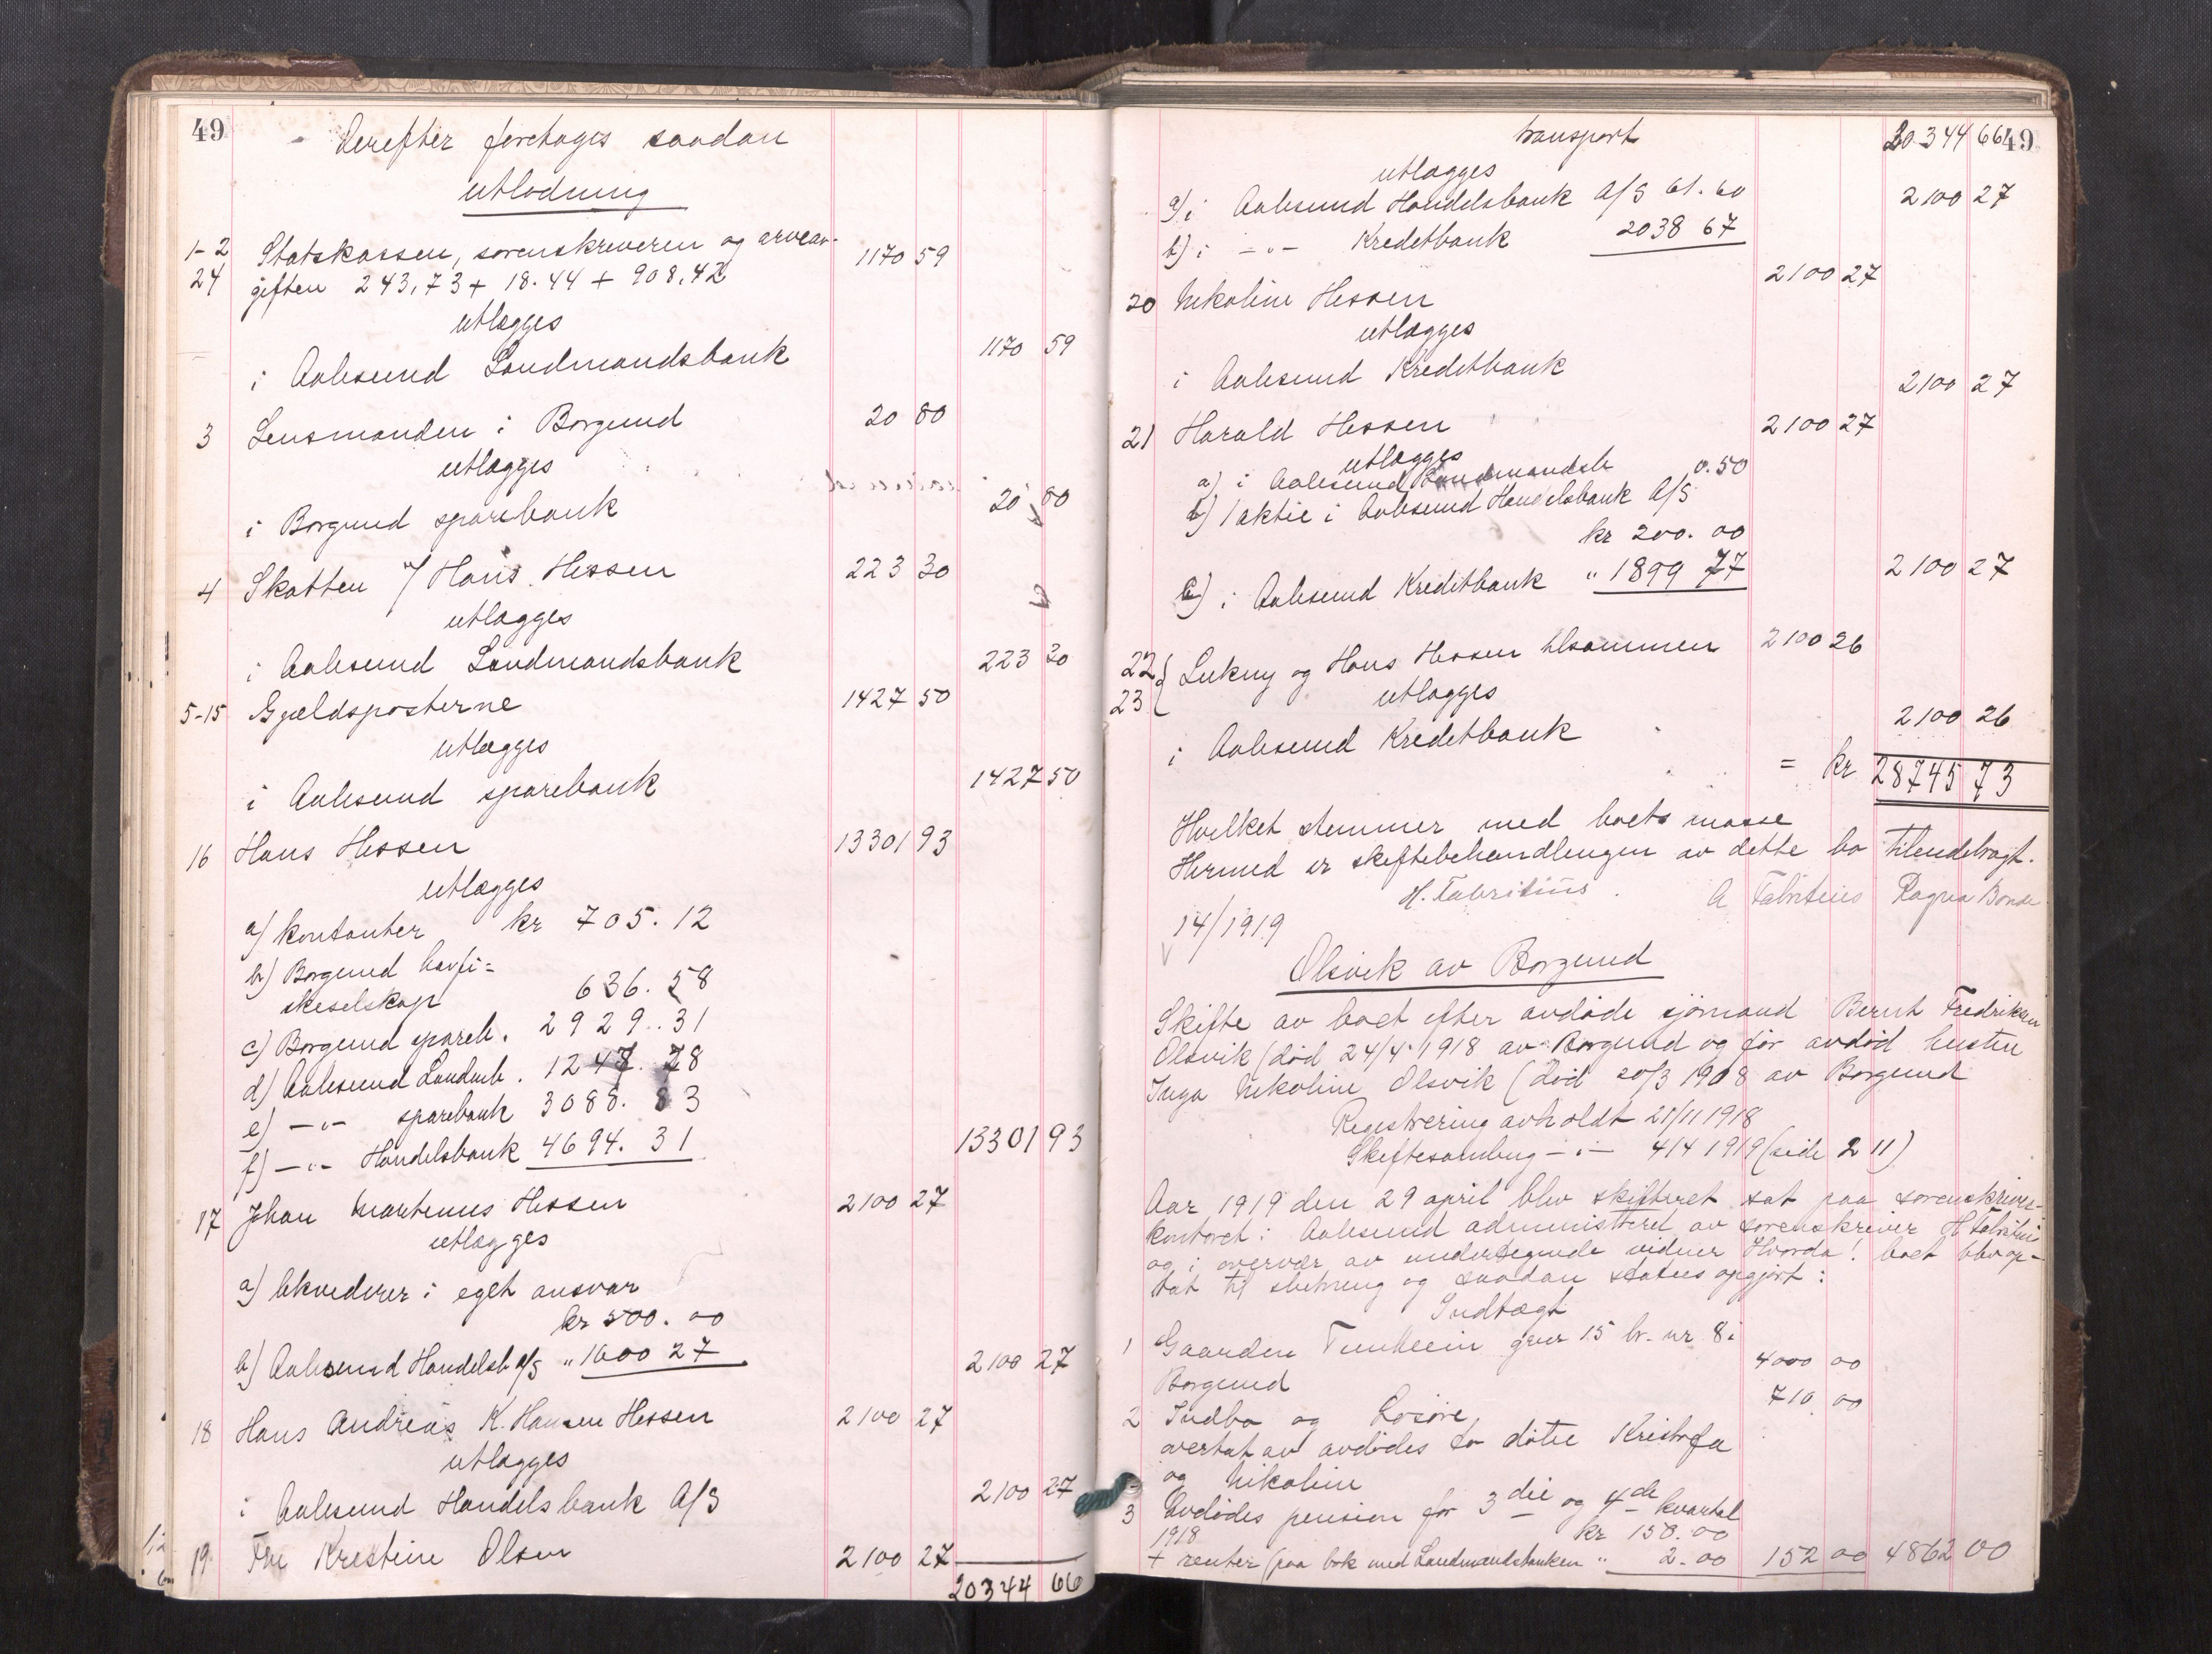 49
Derefter foretages saadan
utlodning
1-2 Statskassen, sorenskriveren og arveav-
24 giften 243,73 + 18.44 + 908,42 1170 59
utlægges
i Aalesund Landmandsbank 1170 59
3 Lensmanden i Borgund 20 80
utlægges
i Borgund sparebank 20 80
4 Skatten a/ Hans Hessen 223 30
utlægges
i Aalesund Landmandsbank 223 30
5-15 Gjældsposterne 1427 50
utlægges
i Aalesund sparebank 1427 50
16 Hans Hessen 13301 93
utlægges
a) kontanter kr 705.12
b) Borgund havfi=
skeselskap 636.58
c) Borgund spareb. 2929.31
d) Aalesund Landmb. 1247.78
e) -"- sparebank 3088.83
f) -"- Handelsbank 4694.31
13301 93
17 Johan Martinus Hessen 2100 27
utlægges
a) likviderer i eget ansvar
kr 500.00
b) Aalesund Handelsb A/S " 1600 27 2100 27
18 Hans Andreas K. Hansen Hessen 2100 27
utlægges
i Aalesund Handelsbank A/S 2100 27
19 Fru Kristine Olsen 2100 27
20344 66
transport 20344 66
49
utlægges
a) i Aalesund Handelsbank A/S 61.60 2100 27
b) i -"- Kreditbank 2038 67
20 Nikoline Hessen 2100 27
utlægges
i Aalesund Kreditbank 2100 27
21 Harald Hessen 2100 27
utlægges
a) i Aalesund Landmandsb 0.50
b) 1 aktie i Aalesund Handelsbank A/S
kr 200.00
c) i Aalesund Kreditbank " 1899 77 2100 27
22 } Hans Hessen tilsammen 2100 26
23
utlægges
i Aalesund Kreditbank 2100 26
= kr 28745 73
Hvilket stemmer med boets masse
Hermed er skiftebehandlingen av dette bo tilendebragt.
H. Fabritius. A Fabritius Ragna Bonde
14/1919
Olsvik av Borgund
Skifte av boet efter avdøde sjømand Bernt Fredriksen
Olsvik (død 24/4 1918 av Borgund og før avdød hustru
Inga Nikoline Olsvik (død 20/3 1908 av Borgund
Registrering avholdt 21/11 1918
Skiftesamling -"- 4/4 1919 (side 211)
Aar 1919 den 29 april blev skifteret sat paa sorenskriver-
kontoret i Aalesund administreret av sorenskriver H Fabritius
og i overvær av undertegnede vidner Hvorda! boet blev op-
tat til slutning og saadan status opgjort:
Indtægt
1 Gaarden gnr 15 br. nr 8 i
Borgund 4000 00
2 Indbo og Løsøre, 710 00
overtat av avdødes to døtre Kristofa
og Nikoline
3 Avdødes pension for 3die og 4de kvartal
1918 kr 150.00
+ renter (paa bok med Landmandsbanken " 2.00 152 00 4862 00